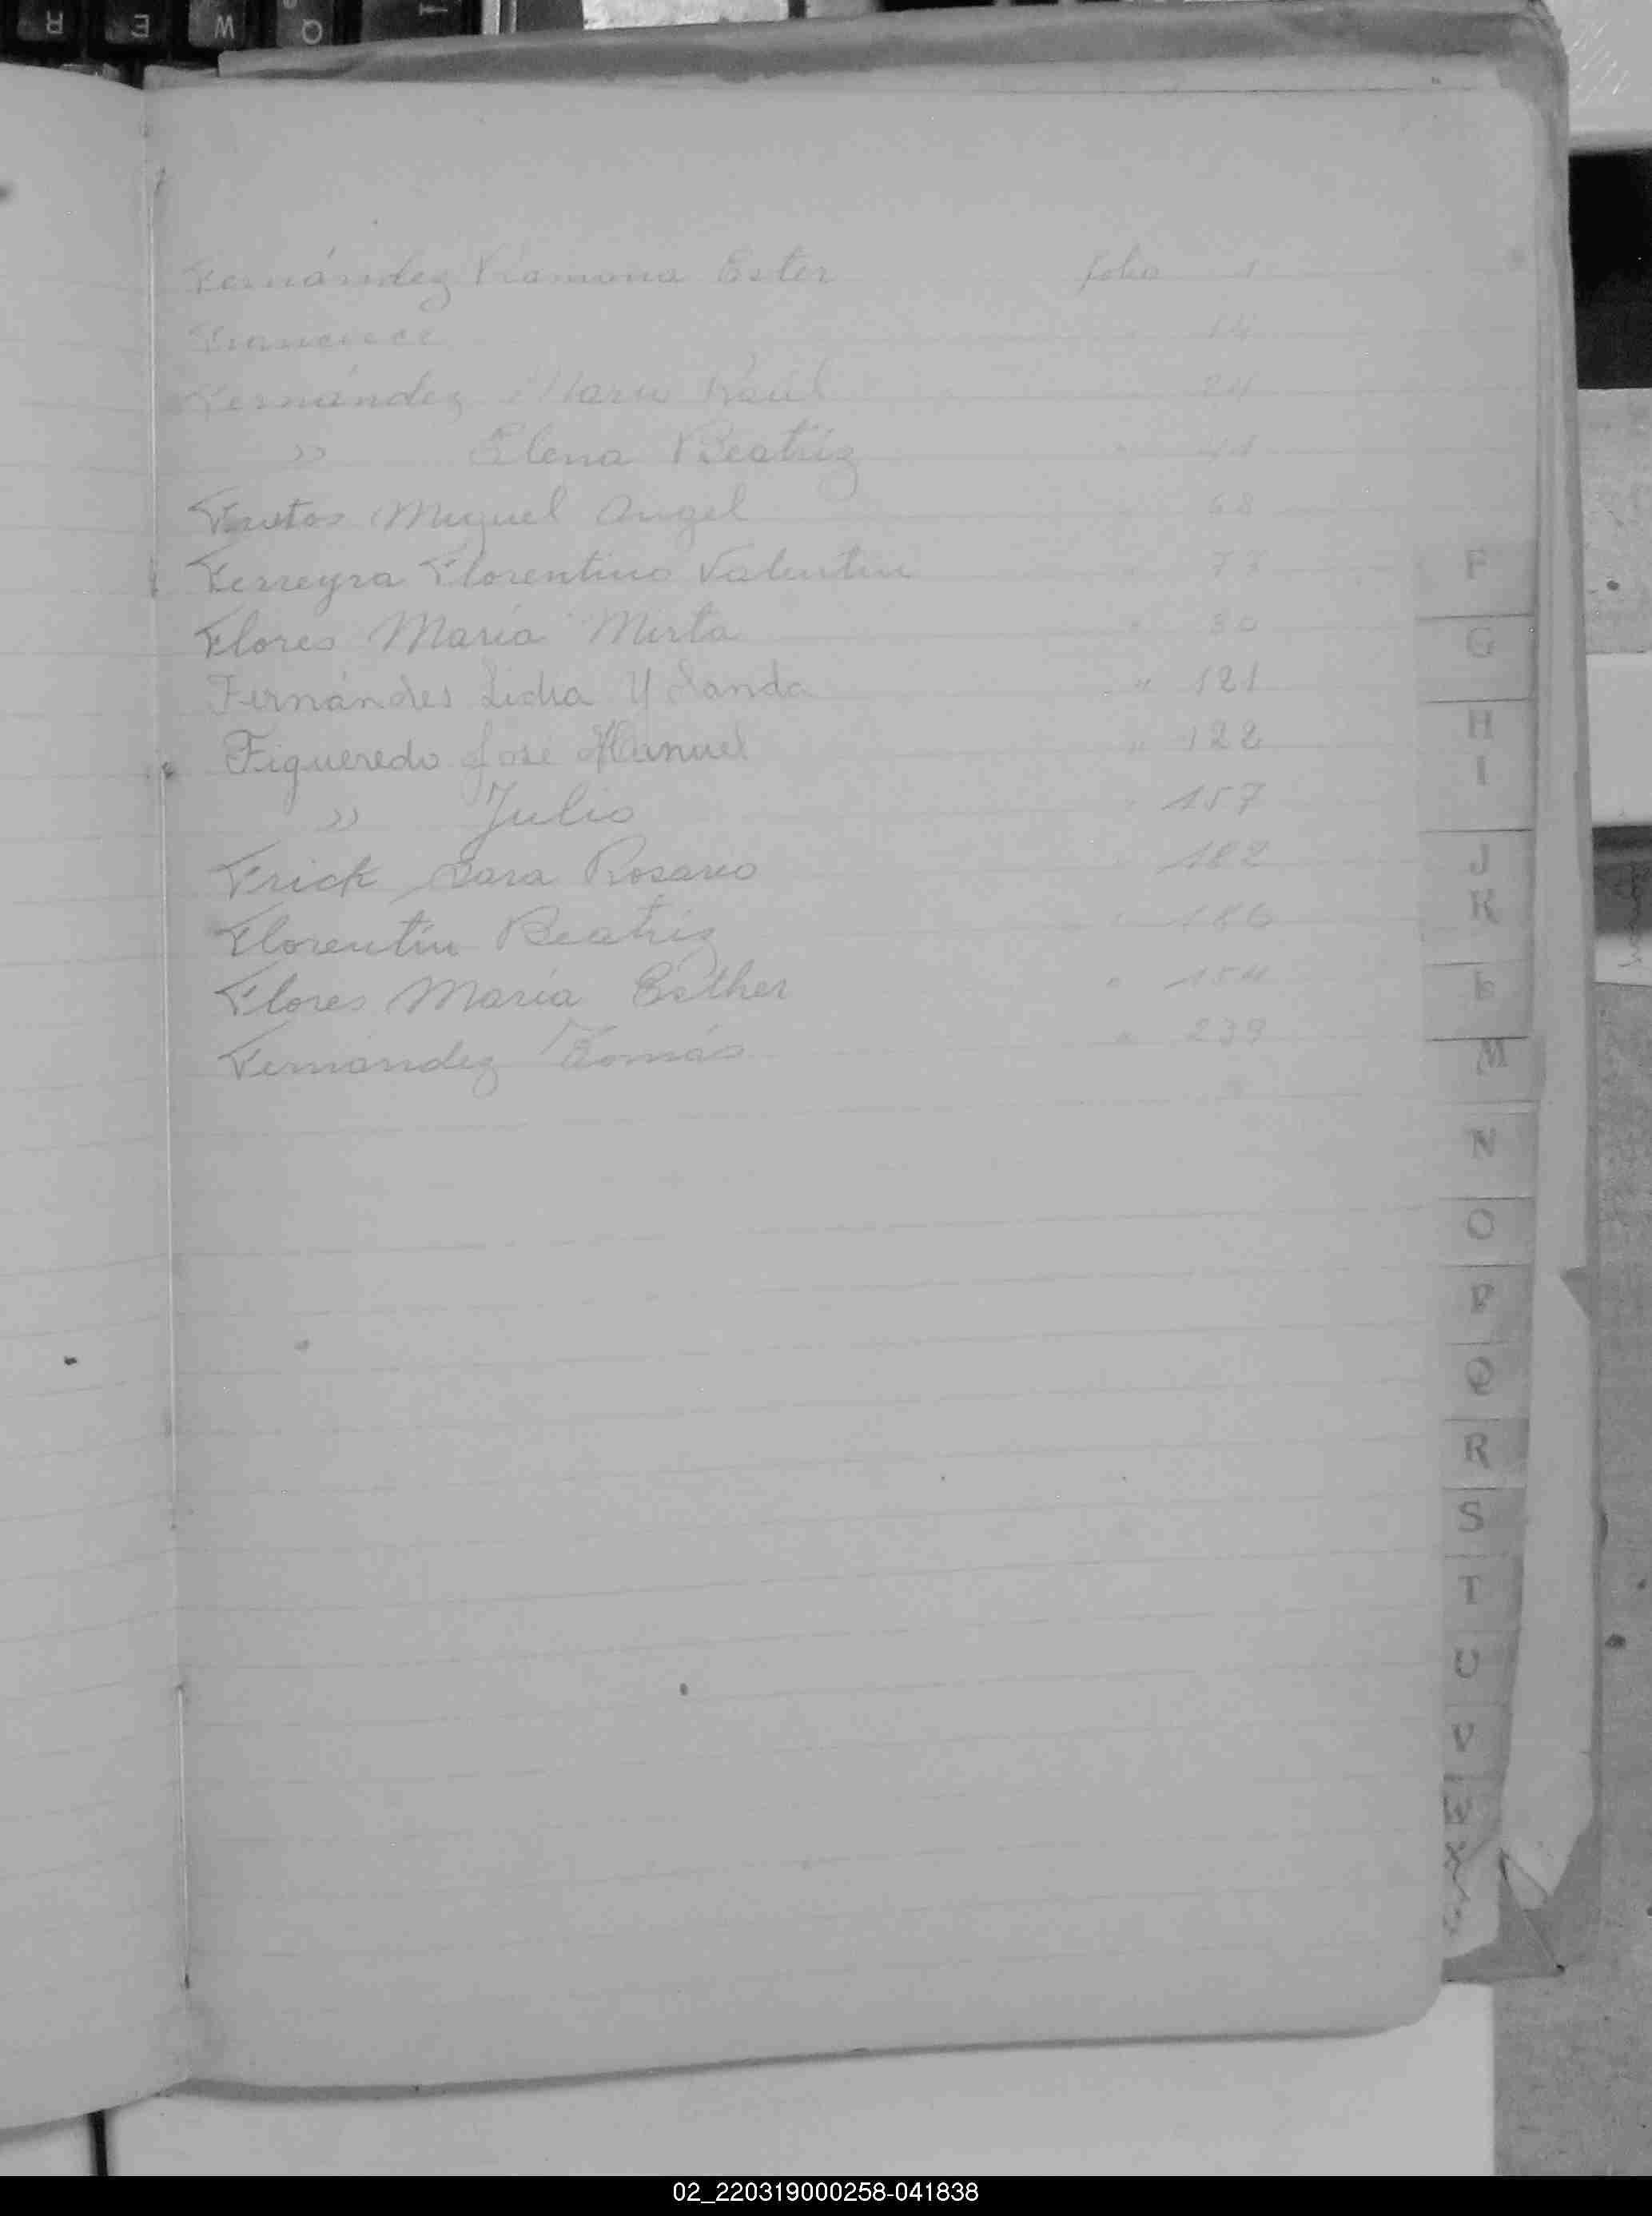 Fernández Ramona Ester folio 1
Francisco 14
Fernández Mario Raúl 24
" Elena Beatriz "
Frutos Miguel Angel 68
Ferreyra Florentino Valentin " 77
Flores María Mirta " 80
Fernándes Lidia Yolanda " 121
Figueredo José Manuel " 122
" Julio " 157
Frick Sara Rosario " 182
Florentin Beatriz " 186
Flores María Esther "
Fernandez Tomás " 239
F
G
H
I
J
K
L
M
N
O
P
Q
R
S
T
U
V
W
X
02_220319000258-041838